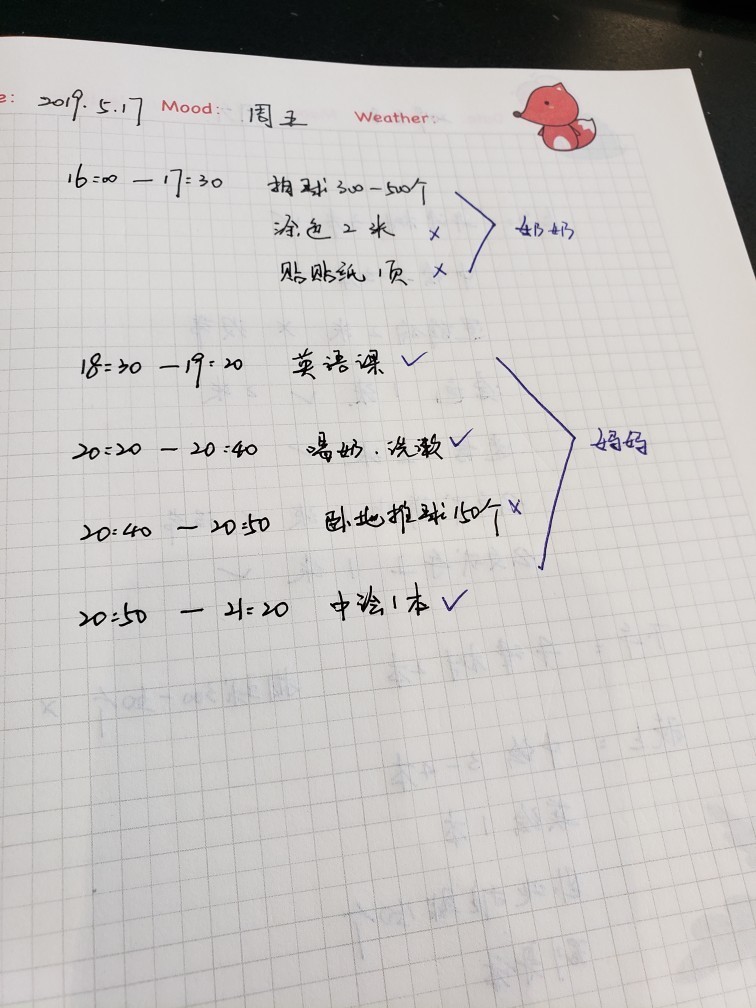 e: 2019.5.17 Mood: 周五 Weather:
16:00 — 17:30 拍球300-500个
涂色2张 × 奶奶
贴贴纸1页 ×
18:30 — 19:20 英语课 ✓
20:20 — 20:40 喝奶.洗漱 ✓ 妈妈
20:40 — 20:50 卧地推球150个 ×
20:50 — 21:20 中绘1本 ✓